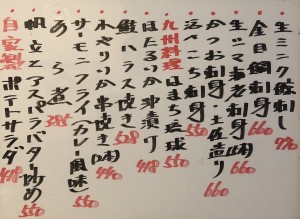 生ミンク鯨刺し 770
金目鯛刺身 660
生ツマ海老刺身(三陸) 660
かつお刺身・土佐造り 660
活〆こち刺身 550
九州料理 はまち琉球 550
ほたるいか沖漬け 418
鮭ハラス焼き 528
小やりいか串焼き(2本) 440
サーモンフライ(カレー風味) 550
あら煮 385
帆立とアスパラバター炒め 550
自家製 ポテトサラダ 418